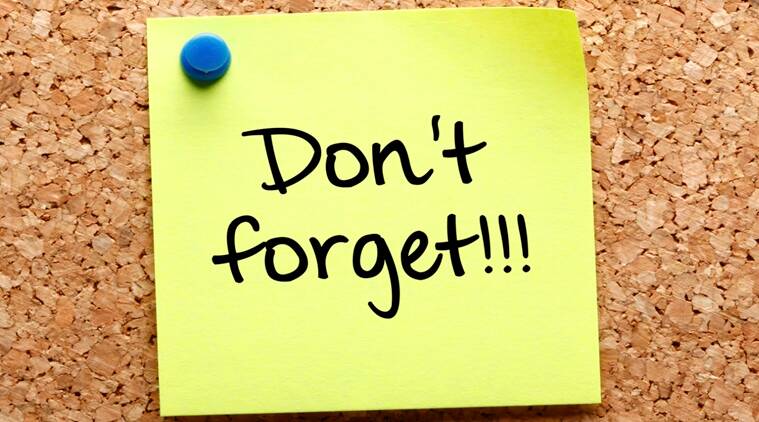 Don't
forget!!!